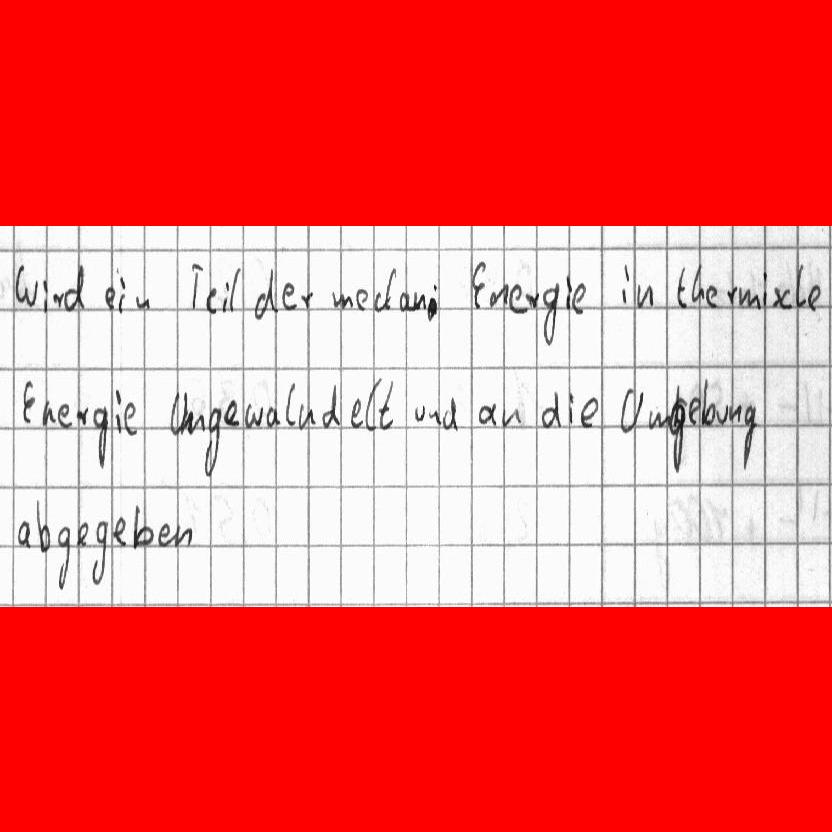 Wird ein Teil der mechani Energie in thermische
Energie Umgewalndelt und an die Umgebung
abgegeben